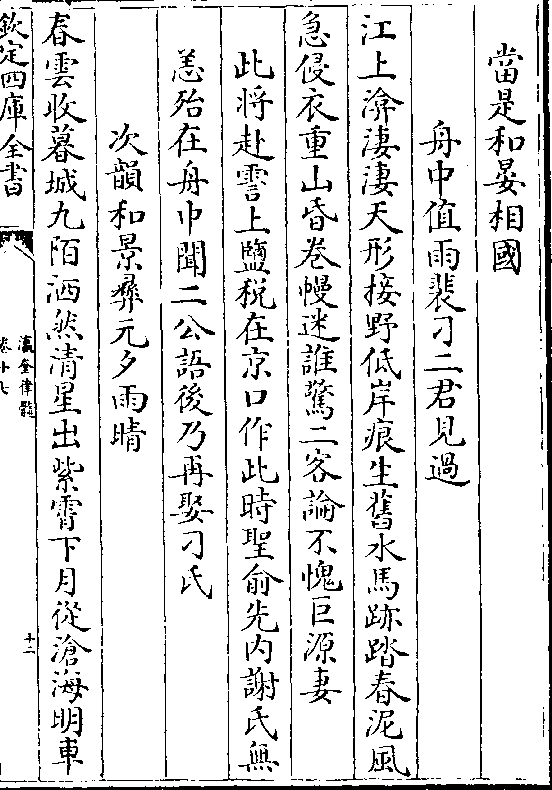 當是和晏相國
舟中值雨裴刁二君見過
江上渰淒淒天形接野低岸痕生舊水馬跡踏春泥風
急侵衣重山昏卷幔迷誰驚二客論不愧巨源妻
此將赴霅上鹽稅在京口作此時聖俞先内謝氏無
恙殆在舟中聞二公語後乃再娶刁氏
次韻和景彞元夕雨晴
春雲收暮城九陌洒然清星出紫霄下月從滄海明車
欽定四庫全書
瀛奎律髓
卷十七
十二